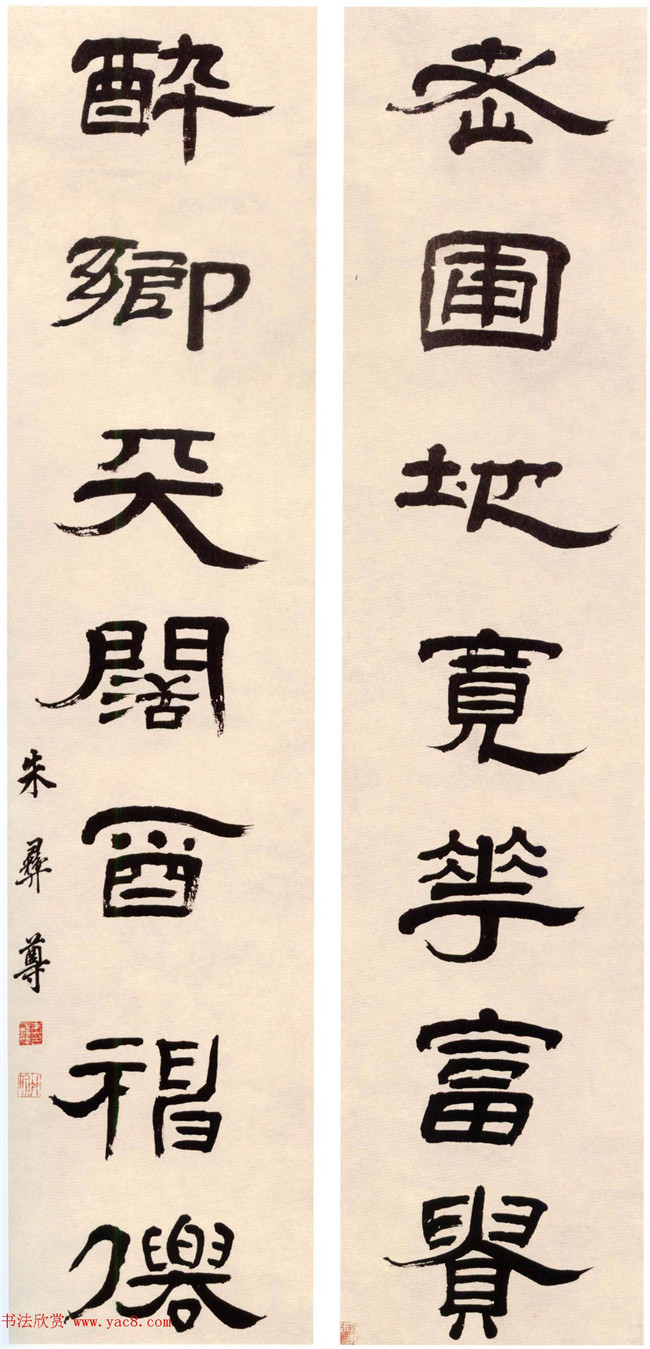 老圃地寬華富貴
醉鄉天闊酉神僊
朱彝尊
书法欣赏 www.yac8.com